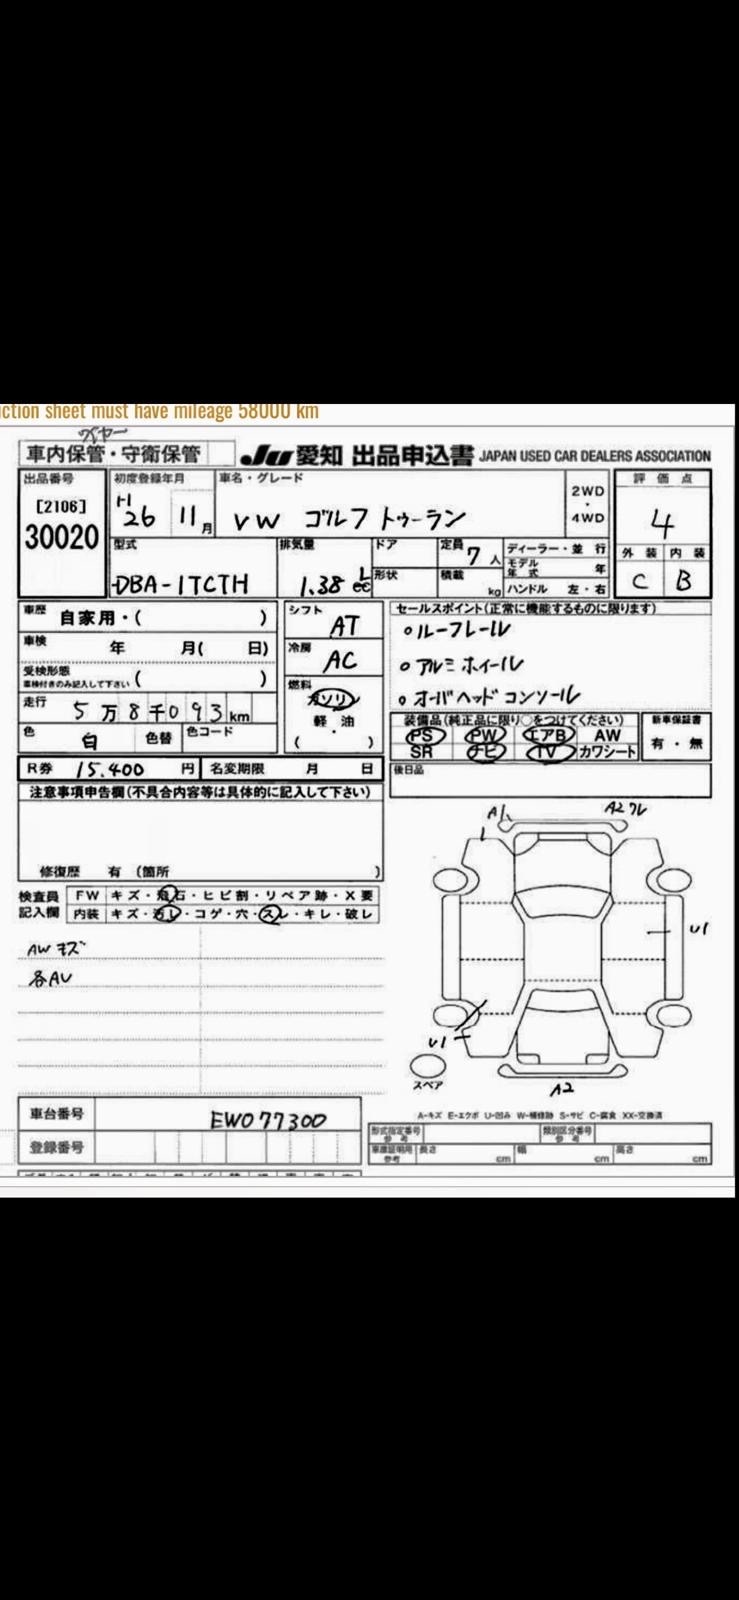 ction sheet must have mileage 58000 km
ワイヤー
車内保管・守衛保管
Ju 愛知 出品申込書 JAPAN USED CAR DEALERS ASSOCIATION
出品番号 初度登録年月 車名・グレード 2WD・4WD 評価点
[2106] 30020
H 26 11月 VW ゴルフ トゥーラン 4
型式 DBA-1TCTH
排気量 1.38 L cc
ドア 形状
定員 7人 積載 kg
ディーラー・並行
モデル年式 年
ハンドル 左・右
外装 内装
C B
車歴 自家用・( )
車検 年 月( 日)
受検形態 車検付きのみ記入して下さい ( )
走行 5万8千093km
色 白 色替 色コード
シフト AT
冷房 AC
燃料 ガソリン
軽・油
・
( )
セールスポイント(正常に機能するものに限ります)
○ルーフレール
○アルミホイール
○オーバヘッドコンソール
装備品(純正品に限り○をつけてください) 新車保証書
PS PW エアB AW 有・無
SR ナビ TV カワシート
R券 15,400円 名変期限 月 日
後日品
注意事項申告欄(不具合内容等は具体的に記入して下さい)
修復歴 有 (箇所 )
検査員記入欄
FW キズ・飛石・ヒビ割・リペア跡・X要
内装 キズ・汚レ・コゲ・穴・スレ・キレ・破レ
AWキズ
各AU
A1
A2ワレ
U1
U1
スペア
A2
A-キズ E-エクボ U-凹み W-補修跡 S-サビ C-腐食 XX-交換済
車台番号 EW077300
登録番号
形式指定番号 参考 類別区分番号 参考
車庫証明用 参考 長さ cm 幅 cm 高さ cm